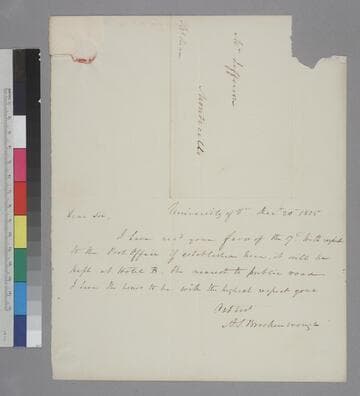 Mr Jefferson
Monticello
University of Va Decr 20 1825
Dear Sir,
I have recd your favor of the 7th with respect
to the Post Office if established here, it will be
kept at Hotel B. the nearest to public road
I have the honor to be with the highest respect your
Obt svt
A.S. Brockenbrough